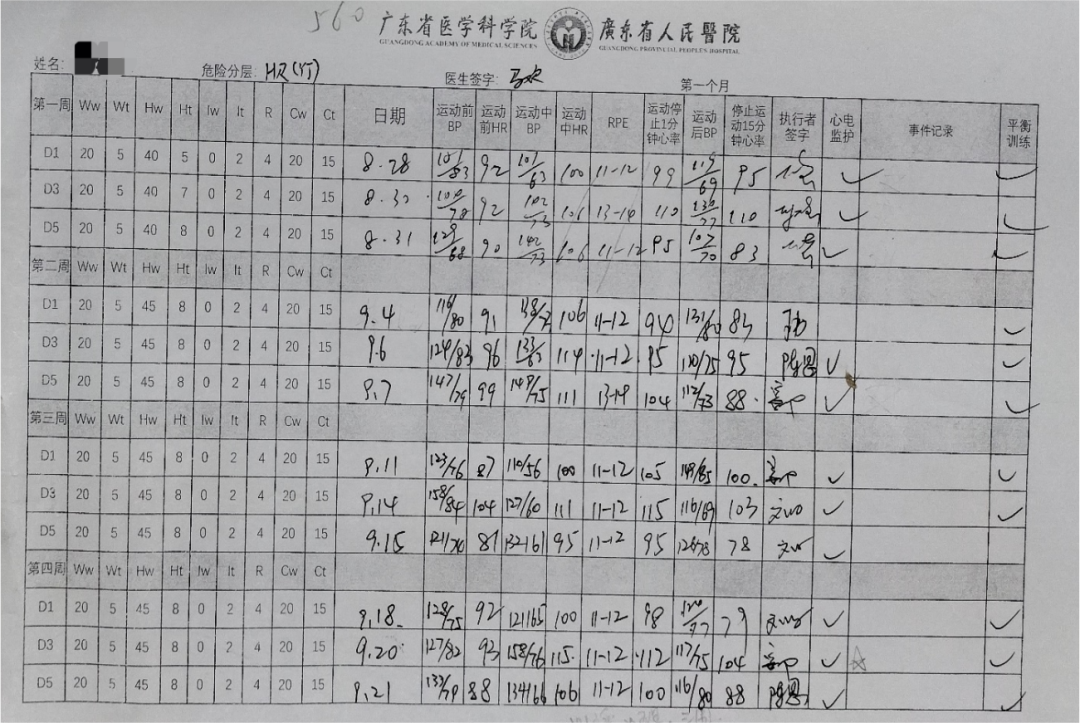 560
广东省医学科学院 廣东省人民醫院
GUANGDONG ACADEMY OF MEDICAL SCIENCES GUANGDONG PROVINCIAL PEOPLE'S HOSPITAL
姓名: 危险分层: HR(行) 医生签字: 第一个月
第一周 Ww Wt Hw Ht Iw It R Cw Ct 日期 运动前BP 运动前HR 运动中BP 运动中HR RPE 运动停止1分钟心率 运动后BP 停止运动15分钟心率 执行者签字 心电监护 事件记录 平衡训练
D1 20 5 40 5 0 2 4 20 15 8.28 92 100 11-12 99 95 ✓ ✓
D3 20 5 40 7 0 2 4 20 15 8.30 92 102/73 106 13-14 110 130/77 110 ✓ ✓
D5 20 5 40 8 0 2 4 20 15 8.31 129/68 90 142/73 106 11-12 95 107/70 83 ✓ ✓
第二周 Ww Wt Hw Ht Iw It R Cw Ct
D1 20 5 45 8 0 2 4 20 15 9.4 116/80 91 106 11-12 94 131/80 83 ✓
D3 20 5 45 8 0 2 4 20 15 9.6 124/83 96 114 11-12 95 110/75 95 ✓ ✓
D5 20 5 45 8 0 2 4 20 15 9.7 147/79 99 149/75 111 13-14 104 112/73 88 ✓ ✓
第三周 Ww Wt Hw Ht Iw It R Cw Ct
D1 20 5 45 8 0 2 4 20 15 9.11 123/76 87 110/56 100 11-12 105 149/85 100 ✓ ✓
D3 20 5 45 8 0 2 4 20 15 9.14 158/84 104 127/60 111 11-12 115 116/69 103 ✓ ✓
D5 20 5 45 8 0 2 4 20 15 9.15 121/70 81 132/61 95 11-12 95 78 ✓
第四周 Ww Wt Hw Ht Iw It R Cw Ct
D1 20 5 45 8 0 2 4 20 15 9.18 128/75 92 121/65 100 11-12 98 79 ✓ ✓
D3 20 5 45 8 0 2 4 20 15 9.20 127/82 93 158/76 115 11-12 112 117/75 104 ✓ ☆ ✓
D5 20 5 45 8 0 2 4 20 15 9.21 133/79 88 134/66 106 11-12 100 116/80 88 ✓ ✓